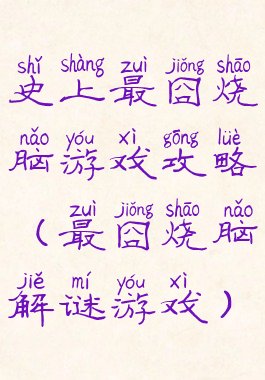 shǐ shàng zuì jiǒng shāo
史上最囧烧
nǎo yóu xì gōng lüè
脑游戏攻略
zuì jiǒng shāo nǎo
（最囧烧脑
jiě mí yóu xì
解谜游戏）